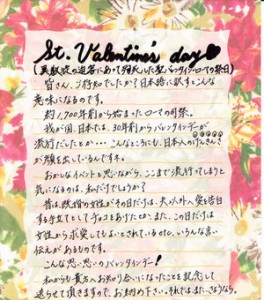 St. Valentine's day
(異教徒の迫害にあって殉死した聖バレンタイン・ローマの祭日)
皆さん、ご存知でしたか?日本語に訳すとこんな
意味になるのです。
約1,700年前から始まったローマの司祭。
我が国、日本では、30年前からバレンタインデーが
流行だしたとか…こんなところにも、日本人のげんきんさ
が顔を出しているんですネ。
おかしなイベントと思いながら、ここまで流行してしまうと
気になるのは、私だけでしょうか?
昔は、既婚の女性がその日だけは、夫以外へ愛を告白
する手立てとしてチョコをあげたとか、また、この日だけは
女性から求愛してもよいとされているなど、いろんな言い
伝えがあるものです。
こんな思い思いのバレンタインデー!
私からも貴方へお知り合いになったことを記念して
送らせて頂きますので、お納め下さい。それではまた、さようなら。